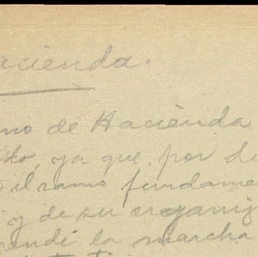 Hacienda.
ramo de Hacienda
ya que, por de
el ramo fundame
y de su organiz
la marcha